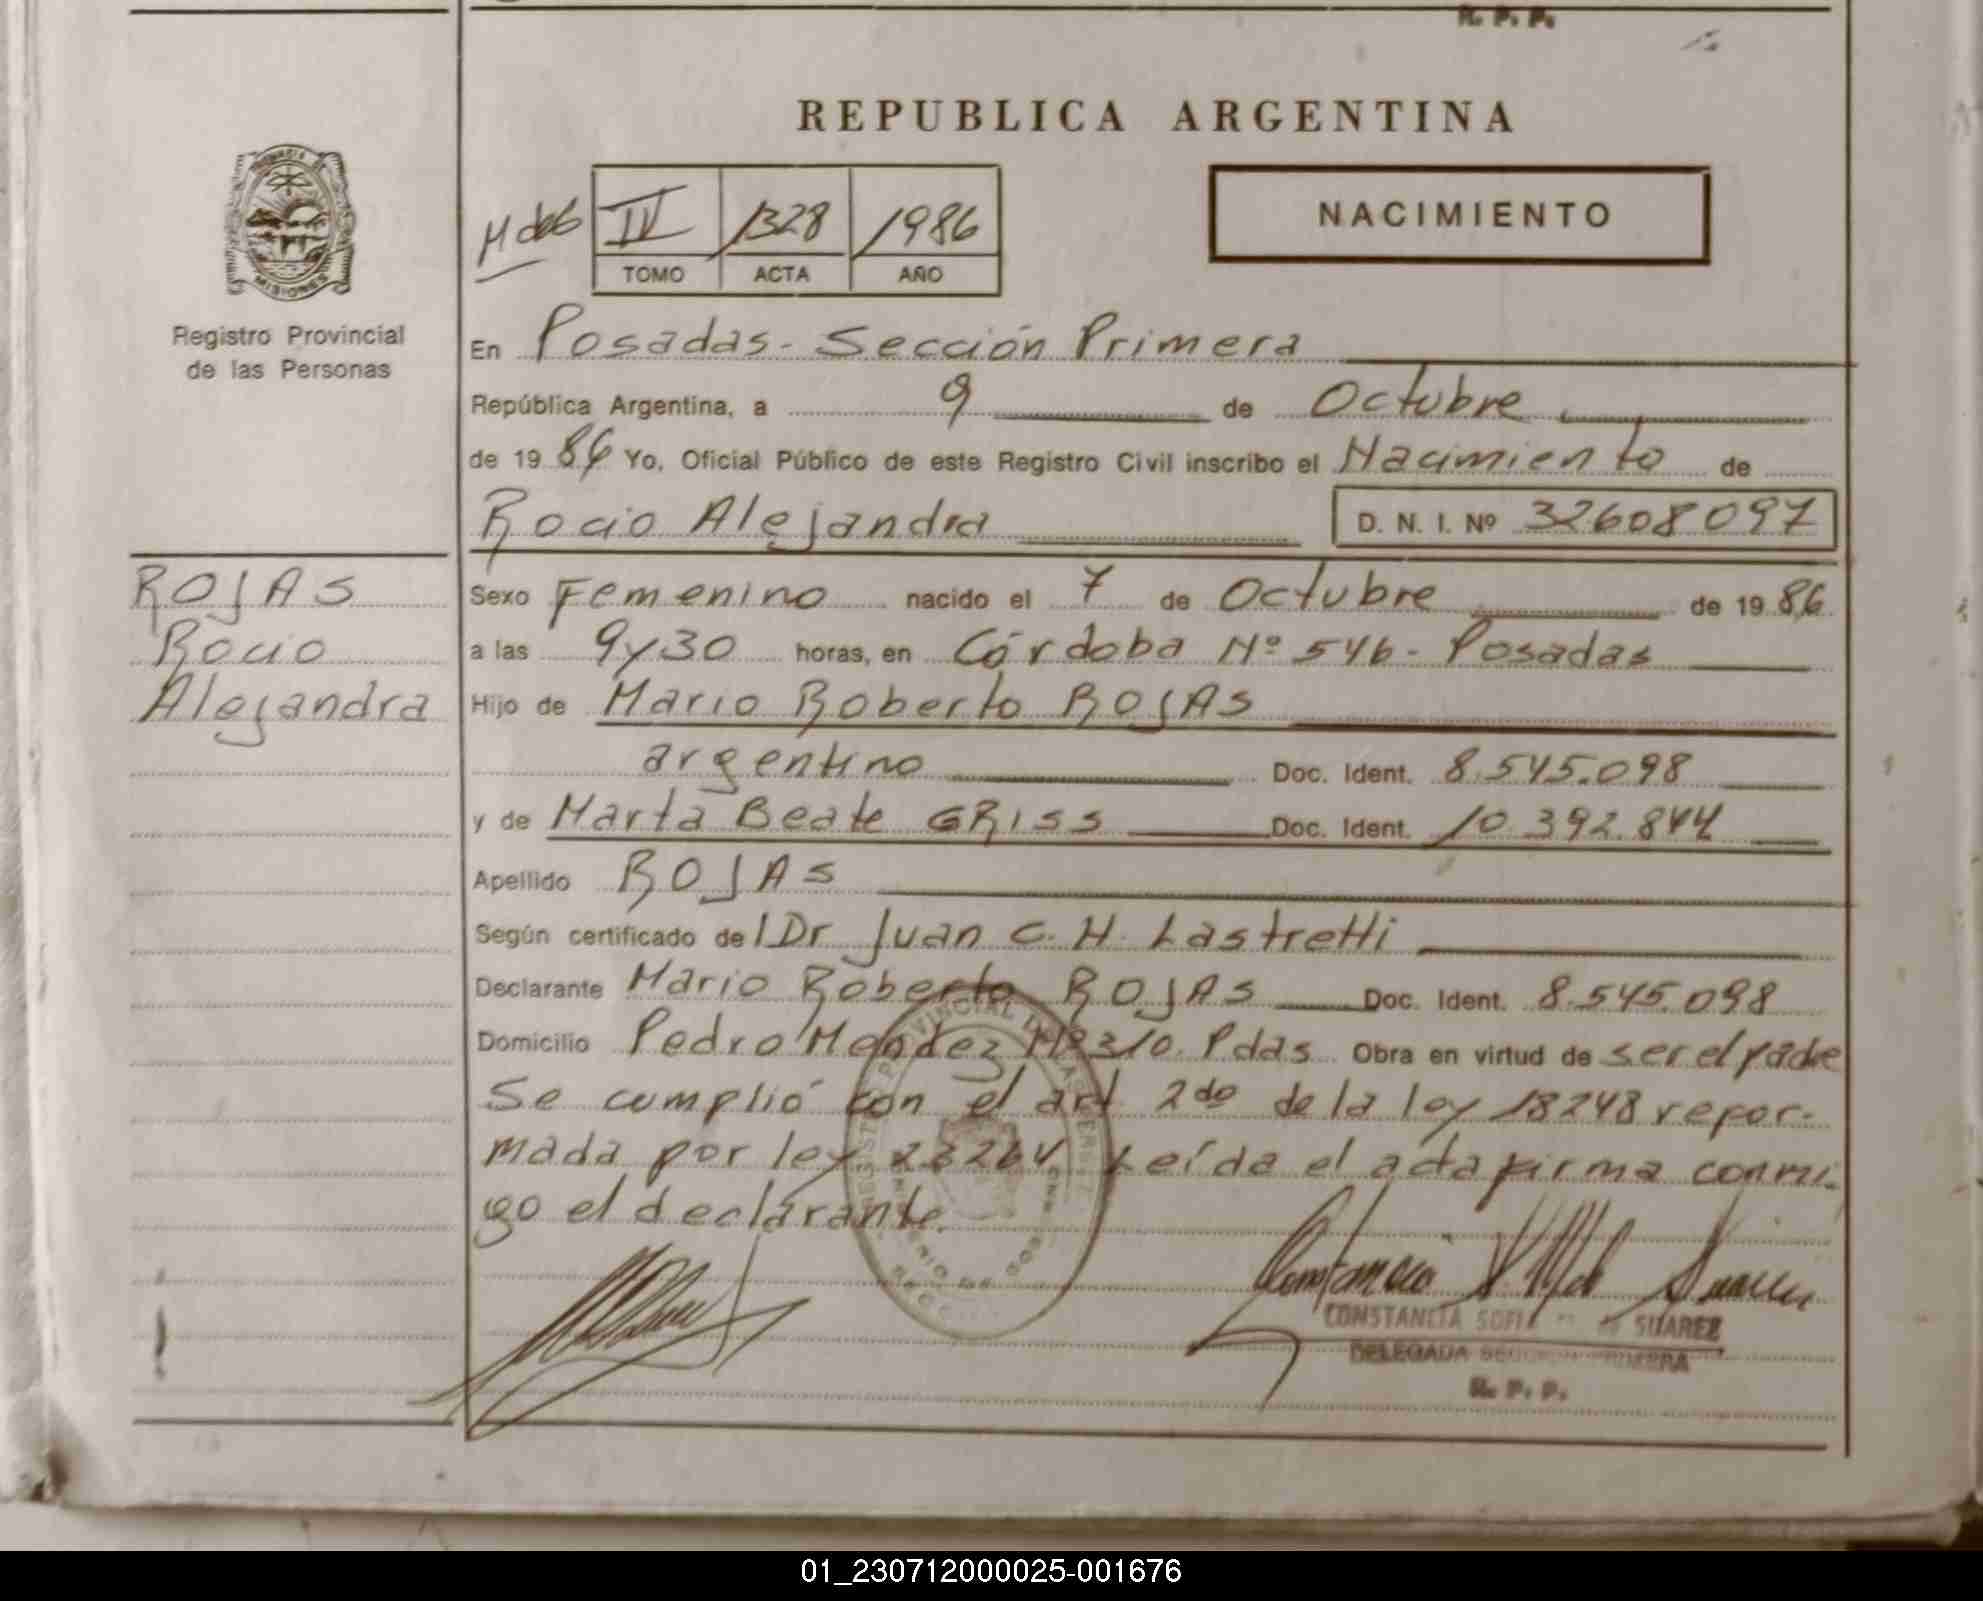 R. P. P.
REPUBLICA ARGENTINA
PROVINCIA DE
MISIONES
Registro Provincial
de las Personas
IV 1328 1986
TOMO ACTA AÑO
NACIMIENTO
En Posadas - Sección Primera
República Argentina, a 9 de Octubre
de 19 86 Yo, Oficial Público de este Registro Civil inscribo el Nacimiento de
Rocio Alejandra D. N. I. Nº 32608097
ROJAS
Rocio
Alejandra
Sexo Femenino nacido el 7 de Octubre de 19 86
a las 9y30 horas, en Córdoba Nº 546 - Posadas
Hijo de Mario Roberto ROJAS
argentino Doc. Ident. 8.545.098
y de Marta Beate GRISS Doc. Ident. 10.392.844
Apellido ROJAS
Según certificado del Dr Juan C. H. Lastretti
Declarante Mario Roberto ROJAS Doc. Ident. 8.545.098
Domicilio Pedro Mendez Nº 310. Pdas Obra en virtud de ser el padre
Se cumplió con el art 2do de la ley 18248 refor-
mada por ley 23264 Leída el acta firma conmi-
go el declarante.
CONSTANCIA SOFIA SUAREZ
DELEGADA SECCION PRIMERA
R. P. P.
01_230712000025-001676